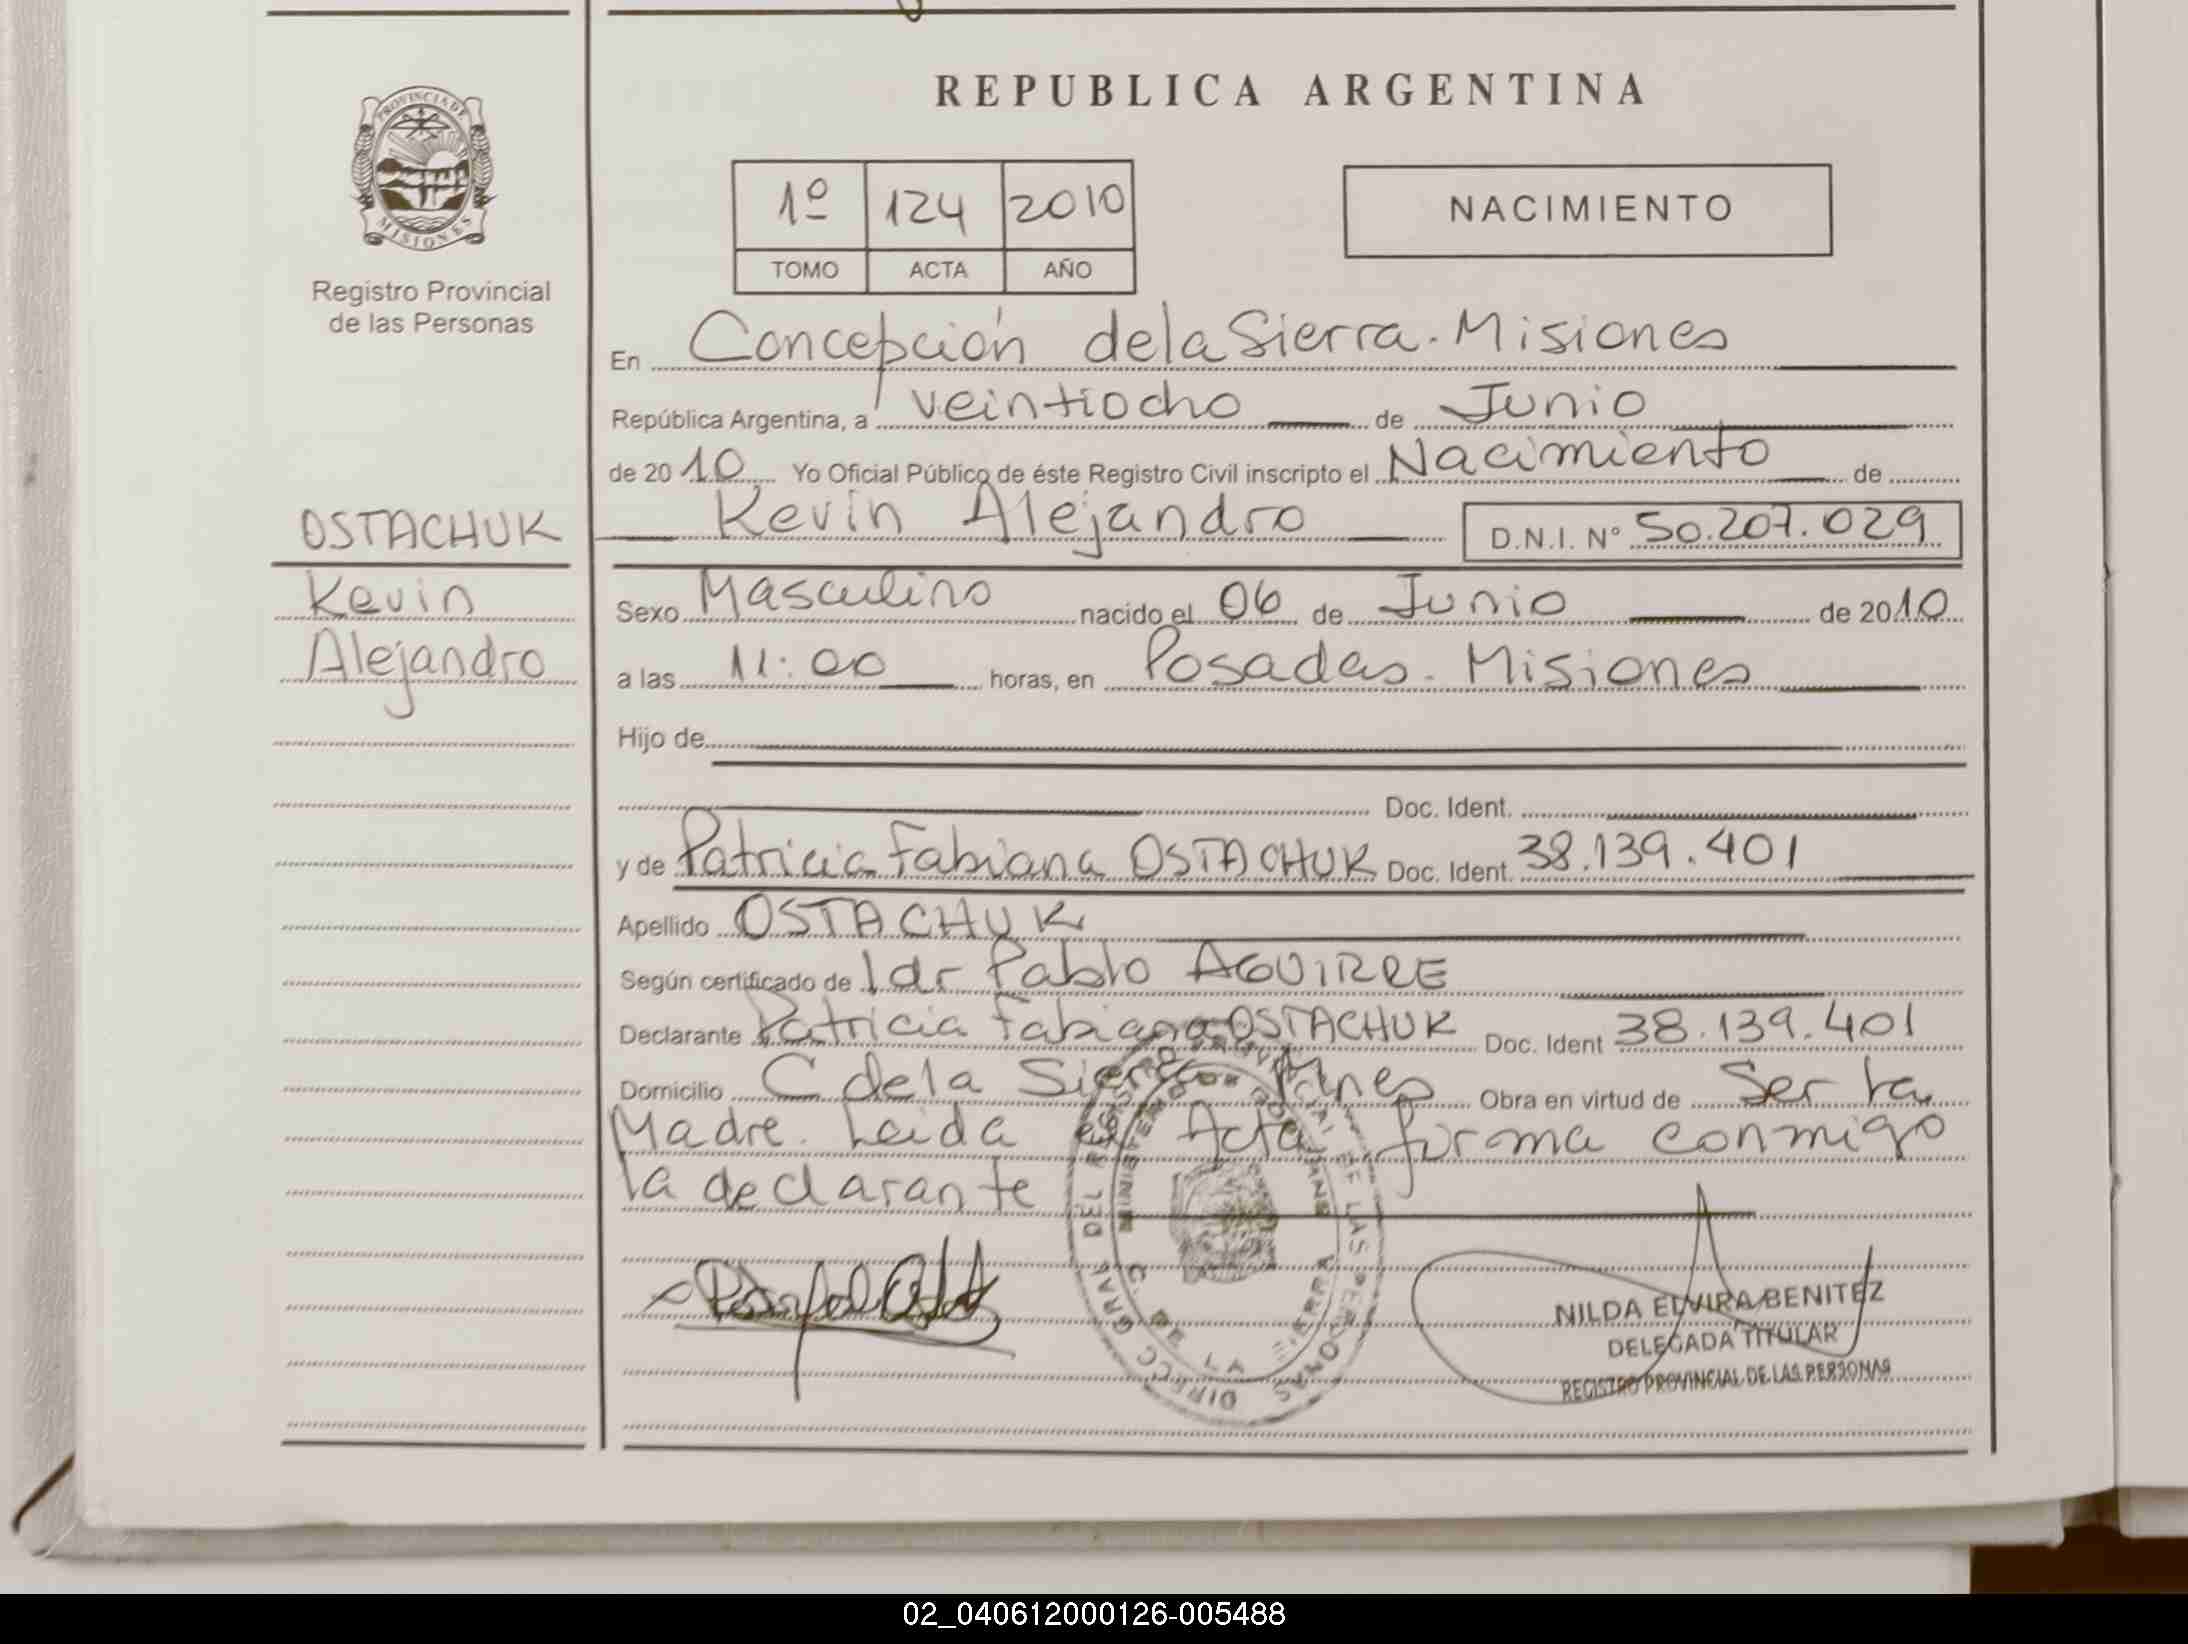 REPUBLICA ARGENTINA
PROVINCIA DE
MISIONES
Registro Provincial
de las Personas
1º 124 2010
TOMO ACTA AÑO
NACIMIENTO
En Concepción de la Sierra. Misiones
República Argentina, a veintiocho de Junio
de 2010 Yo Oficial Público de éste Registro Civil inscripto el Nacimiento de
Kevin Alejandro D.N.I. Nº 50.207.029
OSTACHUK
Kevin
Alejandro
Sexo Masculino nacido el 06 de Junio de 2010
a las 11:00 horas, en Posadas. Misiones
Hijo de
Doc. Ident.
y de Patricia Fabiana OSTACHUK Doc. Ident. 38.139.401
Apellido OSTACHUK
Según certificado de dr Pablo AGUIRRE
Declarante Patricia Fabiana OSTACHUK Doc. Ident 38.139.401
Domicilio C de la Sierra Mnes Obra en virtud de Ser la
Madre. Leida el Acta firma conmigo
la declarante
DIRECC GRAL DEL REGISTRO PROVINCIAL DE LAS PERSONAS
MINISTERIO DE GOBIERNO
C. DE LA SIERRA
NILDA ELVIRA BENITEZ
DELEGADA TITULAR
REGISTRO PROVINCIAL DE LAS PERSONAS
02_040612000126-005488